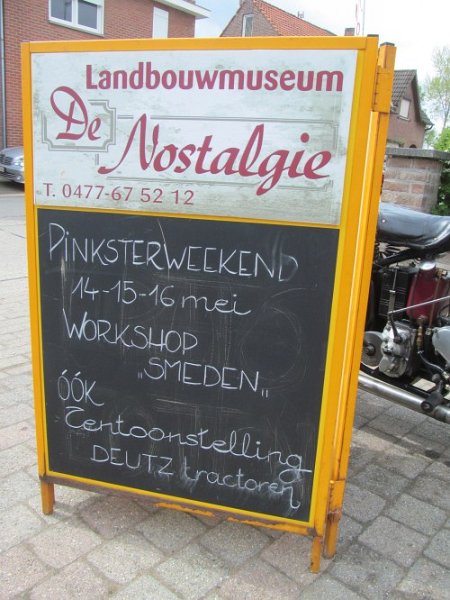 Landbouwmuseum
De Nostalgie
T. 0477-67 52 12
PINKSTERWEEKEND
14-15-16 mei
WORKSHOP
„SMEDEN„
ÓÓK
Tentoonstelling
DEUTZ tractoren